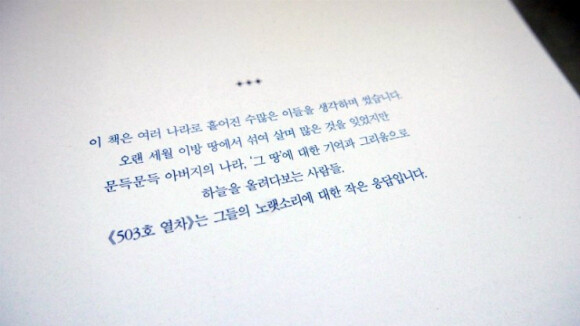 이 책은 여러 나라로 흩어진 수많은 이들을 생각하며 썼습니다.
오랜 세월 이방 땅에서 섞여 살며 많은 것을 잊었지만
문득문득 아버지의 나라, '그 땅'에 대한 기억과 그리움으로
하늘을 올려다보는 사람들.
《503호 열차》는 그들의 노랫소리에 대한 작은 응답입니다.